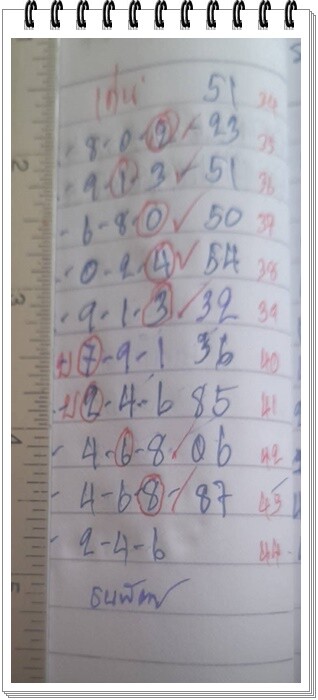 เด่น 51 34
- 8-0-2 ✓ 23 35
- 9-1-3 ✓ 51 36
- 6-8-0 ✓ 50 37
- 0-2-4 ✓ 54 38
- 9-1-3 ✓ 32 39
7-9-1 36 40
2-4-6 85 41
- 4-6-8 ✓ 06 42
- 4-6-8 ✓ 87 43
- 2-4-6 44